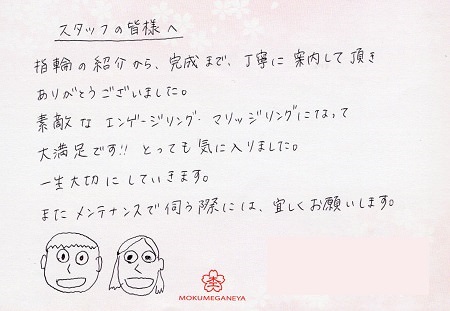 スタッフの皆様へ
指輪の紹介から、完成まで、丁寧に案内して頂き
ありがとうございました。
素敵な エンゲージリング・マリッジリングになって
大満足です!! とっても気に入りました。
一生大切にしていきます。
またメンテナンスで伺う際には、宜しくお願いします。
MOKUMEGANEYA